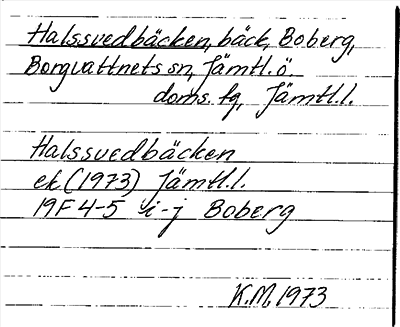 Halssvedbäcken, bäck, Boberg,
Borgvattnets sn, Jämtl. ö.
doms. tg, Jämtl. l.
Halssvedbäcken
ek (1973) Jämtl. l.
19F 4-5 i-j Boberg
K.M. 1973